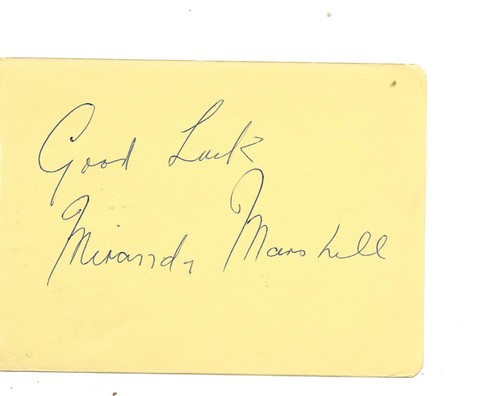 Good Luck
Miranda Marshall